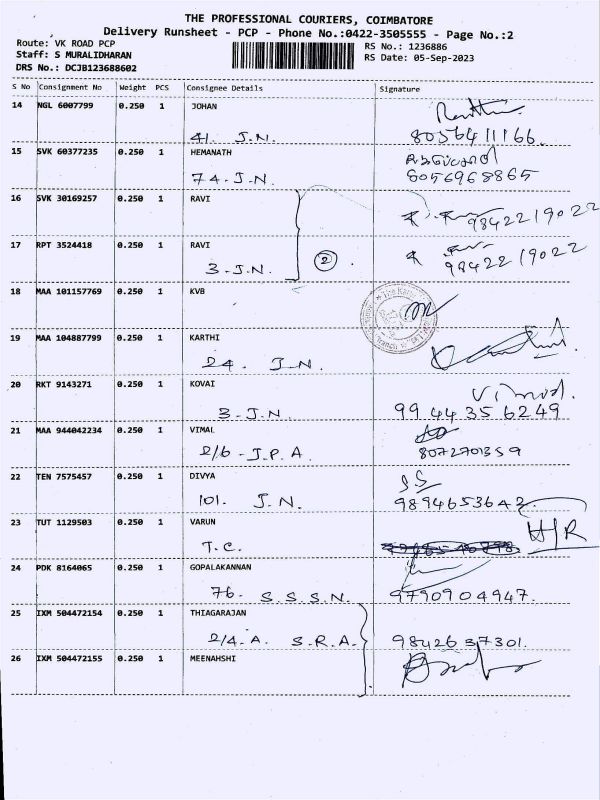 THE PROFESSIONAL COURIERS, COIMBATORE
Delivery Runsheet - PCP - Phone No.:0422-3505555 - Page No.:2
Route: VK ROAD PCP
RS No.: 1236886
Staff: S MURALIDHARAN
RS Date: 05-Sep-2023
DRS No.: DCJB123688602
S No Consignment No Weight PCS Consignee Details Signature
14 NGL 6007799 0.250 1 JOHAN
41. J.N. 8056411166.
15 SVK 60377235 0.250 1 HEMANATH
74-J.N. 8056968865
16 SVK 30169257 0.250 1 RAVI
9842219022
17 RPT 3524418 0.250 1 RAVI
3-J.N. 2 9842219022
18 MAA 101157769 0.250 1 KVB
19 MAA 104887799 0.250 1 KARTHI
24. J.N.
20 RKT 9143271 0.250 1 KOVAI
Vimal.
3-J.N. 9944356249
21 MAA 944042234 0.250 1 VIMAL
2/6-J.P.A. 8072701359
22 TEN 7575457 0.250 1 DIVYA
101. J.N. 9894653642.
23 TUT 1129503 0.250 1 VARUN
T.C. H/R
24 PDK 8164065 0.250 1 GOPALAKANNAN
76- S.S.S.N. 9790904947.
25 IXM 504472154 0.250 1 THIAGARAJAN
2/4-A. S.R.A. 9842637301.
26 IXM 504472155 0.250 1 MEENAHSHI